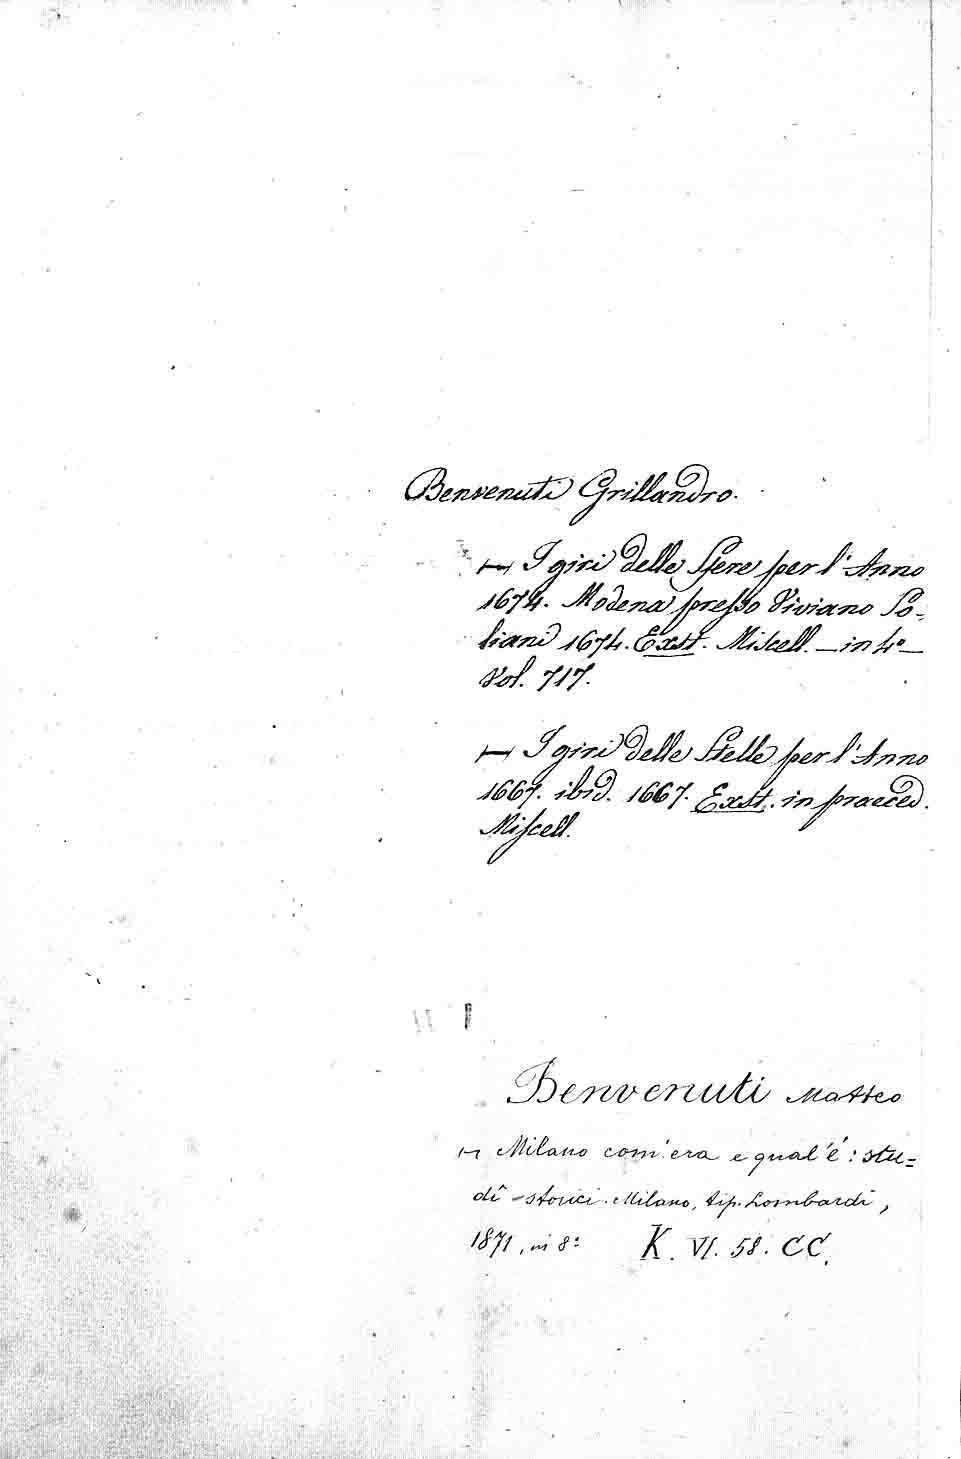 Benvenuti Grillandro.
⟼ I giri delle Sfere per l'Anno
1674. Modena presso Viviano So-
liani 1674. Exst. Miscell. — in 4º —
Vol. 717.
⟼ I giri delle Stelle per l'Anno
1667. ibid. 1667. Exst. in praeced.
Miscell.
Benvenuti Matteo
⟼ Milano com'era e qual'é: stu=
dî storici. Milano, tip. Lombardi,
1871, in 8º K. VI. 58. CC.